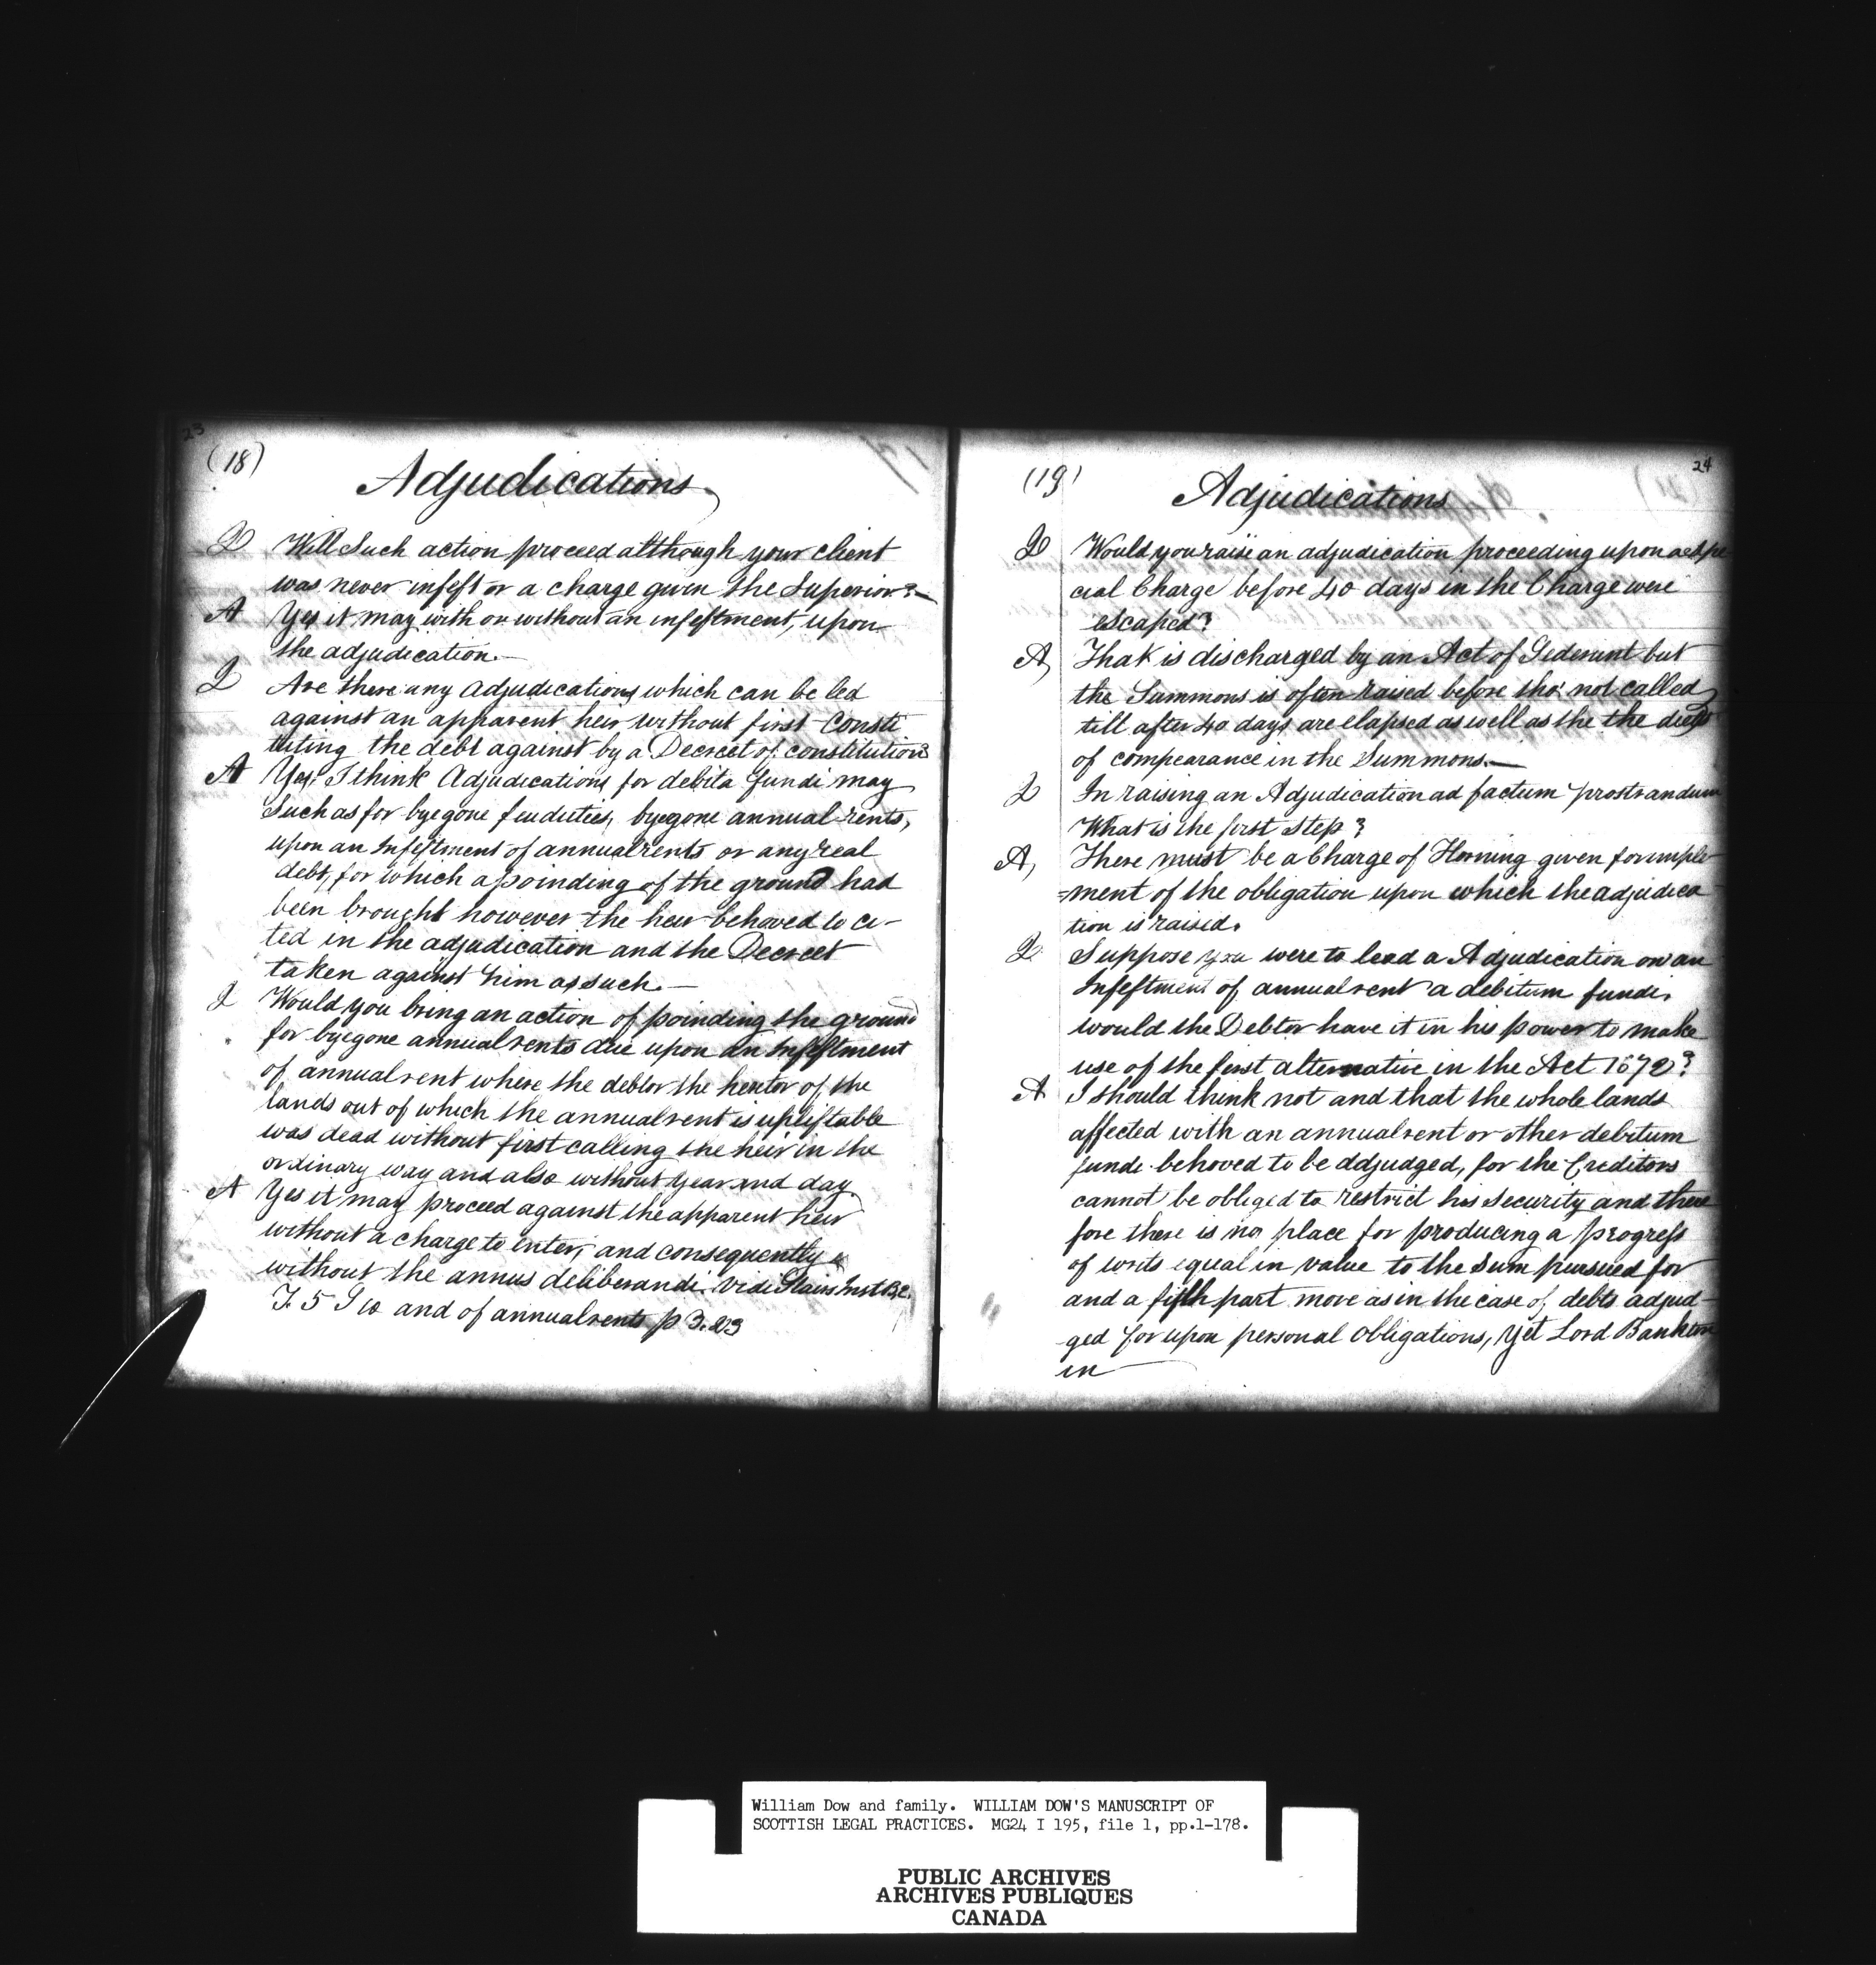 23
(18)
Adjudications
Q Will Such action proceed although your client
was never infeft or a charge given the Superior?
A Yes it may with or without an infeftment, upon
the adjudication.
Q Are there any Adjudications which can be led
against an apparent heir without first Consti
tuting the debt against by a Decreet of constitution?
A Yes, I think Adjudications for debita fundi may
Such as for byegone feuduties, byegone annualrents,
upon an Infeftment of annualrents or any real
debt, for which a poinding of the ground had
been brought however the heir behoved to ci-
ted in the adjudication and the Decreet
taken against him as such.
Q Would you bring an action of poinding the ground
for byegone annualrents due upon an Infeftment
of annualrent where the debtor the heritor of the
lands out of which the annualrent is upliftable
was dead without first calling the heir in the
ordinary way and also without year and day
A Yes it may proceed against the apparent heir
without a charge to enter, and consequently
without the annus deliberandi. Vide Stairs Inst B.2.
T. 5 § 10 and of annualrents p 3.
24
(19)
Adjudications
Q Would you raise an adjudication proceeding upon a spe
cial Charge before 40 days in the Charge were
escaped?
A, That is discharged by an Act of Sederunt but
the Summons is often raised before tho' not called
till after 40 days are elapsed as well as the the diets
of compearance in the Summons.
Q In raising an Adjudication ad factum prostrandum
What is the first step?
A, There must be a Charge of Horning given for imple
=ment of the obligation upon which the adjudica
tion is raised.
Q Suppose you were to lead a Adjudication on an
Infeftment of annualrent a debitum fundi,
would the Debtor have it in his power to make
use of the first alternative in the Act 1672?
A I should think not and that the whole lands
affected with an annualrent or other debitum
fundi behoved to be adjudged, for the Creditors
cannot be obliged to restrict his security and there
fore there is no place for producing a progress
of writs equal in value to the Sum pursued for
and a fifth part more as in the case of debts adjud-
ged for upon personal obligations, yet Lord Bankton
in
William Dow and family. WILLIAM DOW'S MANUSCRIPT OF
SCOTTISH LEGAL PRACTICES. MG24 I 195, file 1, pp.1-178.
PUBLIC ARCHIVES
ARCHIVES PUBLIQUES
CANADA